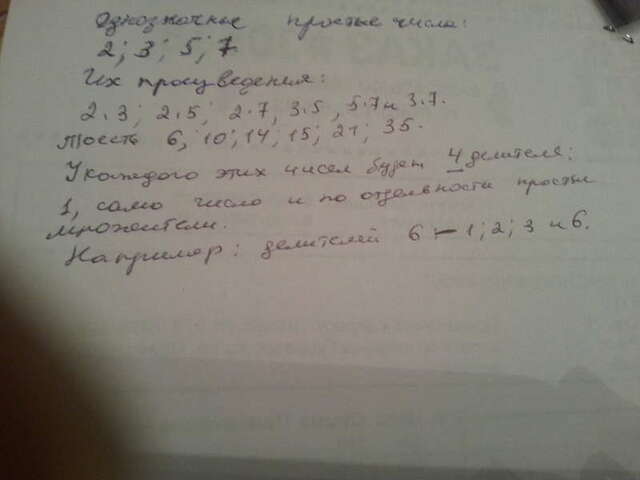 Однозначные простые числа:
2; 3; 5; 7
Их произведения:
2·3; 2·5; 2·7, 3·5, 5·7 и 3·7.
Тоесть 6, 10; 14, 15; 21; 35.
У каждого этих чисел будет 4 делителя:
1, само число и по отдельности простые
множители.
Например: делителей 6 – 1; 2; 3 и 6.